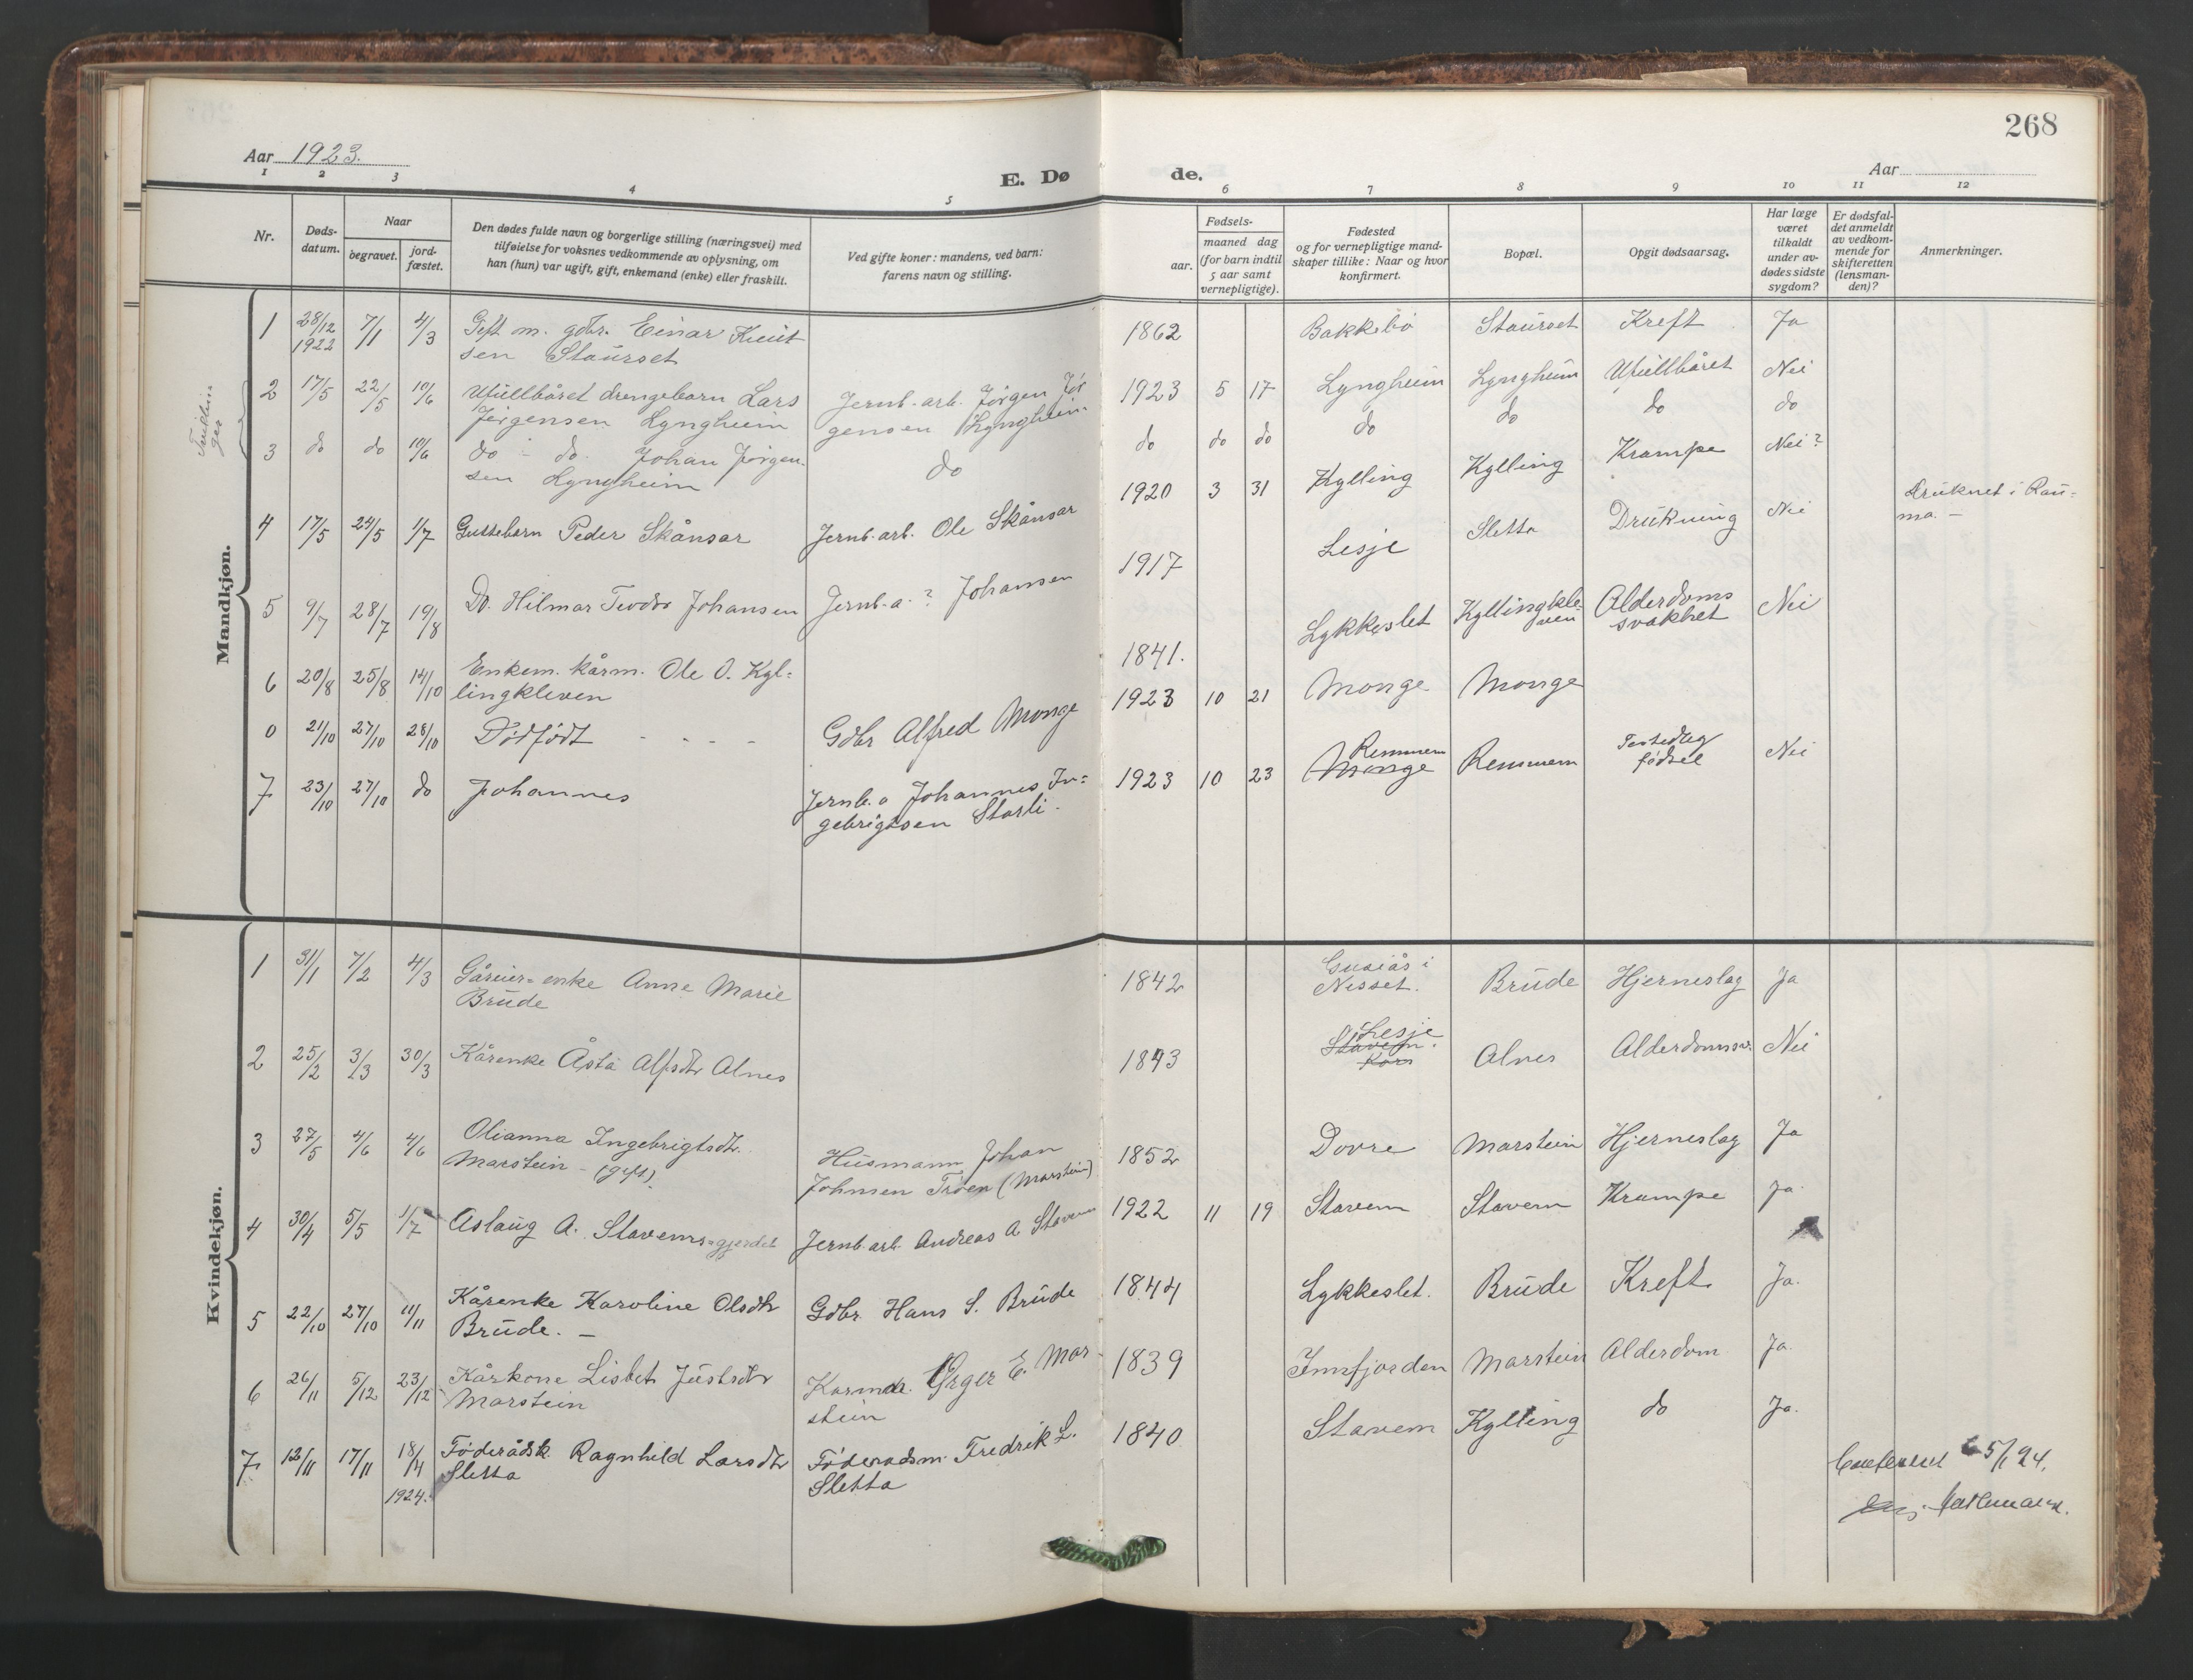 268
Aar 1923.
E. Dø
de.
Aar
1 2 3 4 5 6 7 8 9 10 11 12
Nr.
Døds-
datum.
Naar
begravet.
jord-
fæstet.
Den dødes fulde navn og borgerlige stilling (næringsvei) med
tilføielse for voksnes vedkommende av oplysning, om
han (hun) var ugift, gift, enkemand (enke) eller fraskilt.
Ved gifte koner: mandens, ved barn:
farens navn og stilling.
Fødsels-
aar.
maaned dag
(for barn indtil
5 aar samt
vernepligtige).
Fødested
og for vernepligtige mand-
skaper tillike: Naar og hvor
konfirmert.
Bopæl.
Opgit dødsaarsag.
Har læge
været
tilkaldt
under av-
dødes sidste
sygdom?
Er dødsfal-
det anmeldt
av vedkom-
mende for
skifteretten
(lensman-
den)?
Anmerkninger.
Mandkjøn.
1 28/12 1922 7/1 4/3 Gift m. gdbr. Einar Knut
sen Staurset
1862 Bakkebø Staurset Kreft Ja
2 17/5 22/5 10/6 Ufullbåret drengebarn Lars
Jørgensen Lyngheim
Jernb. arb. Jørgen Jør
gensen Lyngheim
1923 5 17 Lyngheim Lyngheim Ufullbåret Nei
3 do do 10/6 do - do Johan Jørgen-
sen Lyngheim
do
do do do do do do do
4 17/5 24/5 1/7 Guttebarn Peder Skånsar Jernb. arb. Ole Skånsar
1920 3 31 Kylling Kylling Krampe Nei?
5 9/7 28/7 19/8 Do. Hilmar Teodor Johansen Jernb. a. ? Johansen
1917 Lesje Sletta Drukning Nei Druknet i Rau=
ma. -
6 20/8 25/8 14/10 Enkem. kårm. Ole O. Kyl=
lingkleven
1841. Lykkeslet Kyllingkle-
ven
Alderdoms
svakhet
Nei
0 21/10 27/10 28/10 Dødfødt - - - - Gdbr Alfred Monge
1923 10 21 Monge Monge
7 23/10 27/10 do Johannes Jernb. a Johannes In=
gebrigtsen Starli.
1923 10 23 Remmem
Monge
Remmem
fødsel
Nei
Kvindekjøn.
1 31/1 7/2 4/3 enke Anne Marie
Brude
1842 i
Nesset.
Brude Hjerneslag Ja
2 25/2 3/3 30/3 Kårenke Åsta Alfsdtr Alnes
1843 Lesje
Stavem.
Kors
Alnes Alderdomssv. Nei
3 27/5 4/6 4/6 Olianna Ingebrigtsdtr.
Marstein - (gift)
Husmann Johan
Johnsen Trøen (Marstein)
1852 Dovre Marstein Hjerneslag Ja
4 30/4 5/5 1/7 Aslaug A. Stavems=gjerdet Jernb. arb. Andreas A Stavem
1922 11 19 Stavem Stavem Krampe Ja
5 22/10 27/10 11/11 Kårenke Karoline Olsdtr
Brude. -
Gdbr. Hans S. Brude
1844 Lykkeslet. Brude Kreft Ja.
6 26/11 5/12 23/12 Kårkone Lisbet Justsdtr
Marstein
E. Mar
stein
1839 Innfjorden Marstein Alderdom Ja.
7 12/11 17/11 18/4
1924.
Føderådsk. Ragnhild Larsdtr
Sletta
Føderadsm. Fredrik L.
Sletta
1840 Stavem Kylling do Ja.
5/1 24.